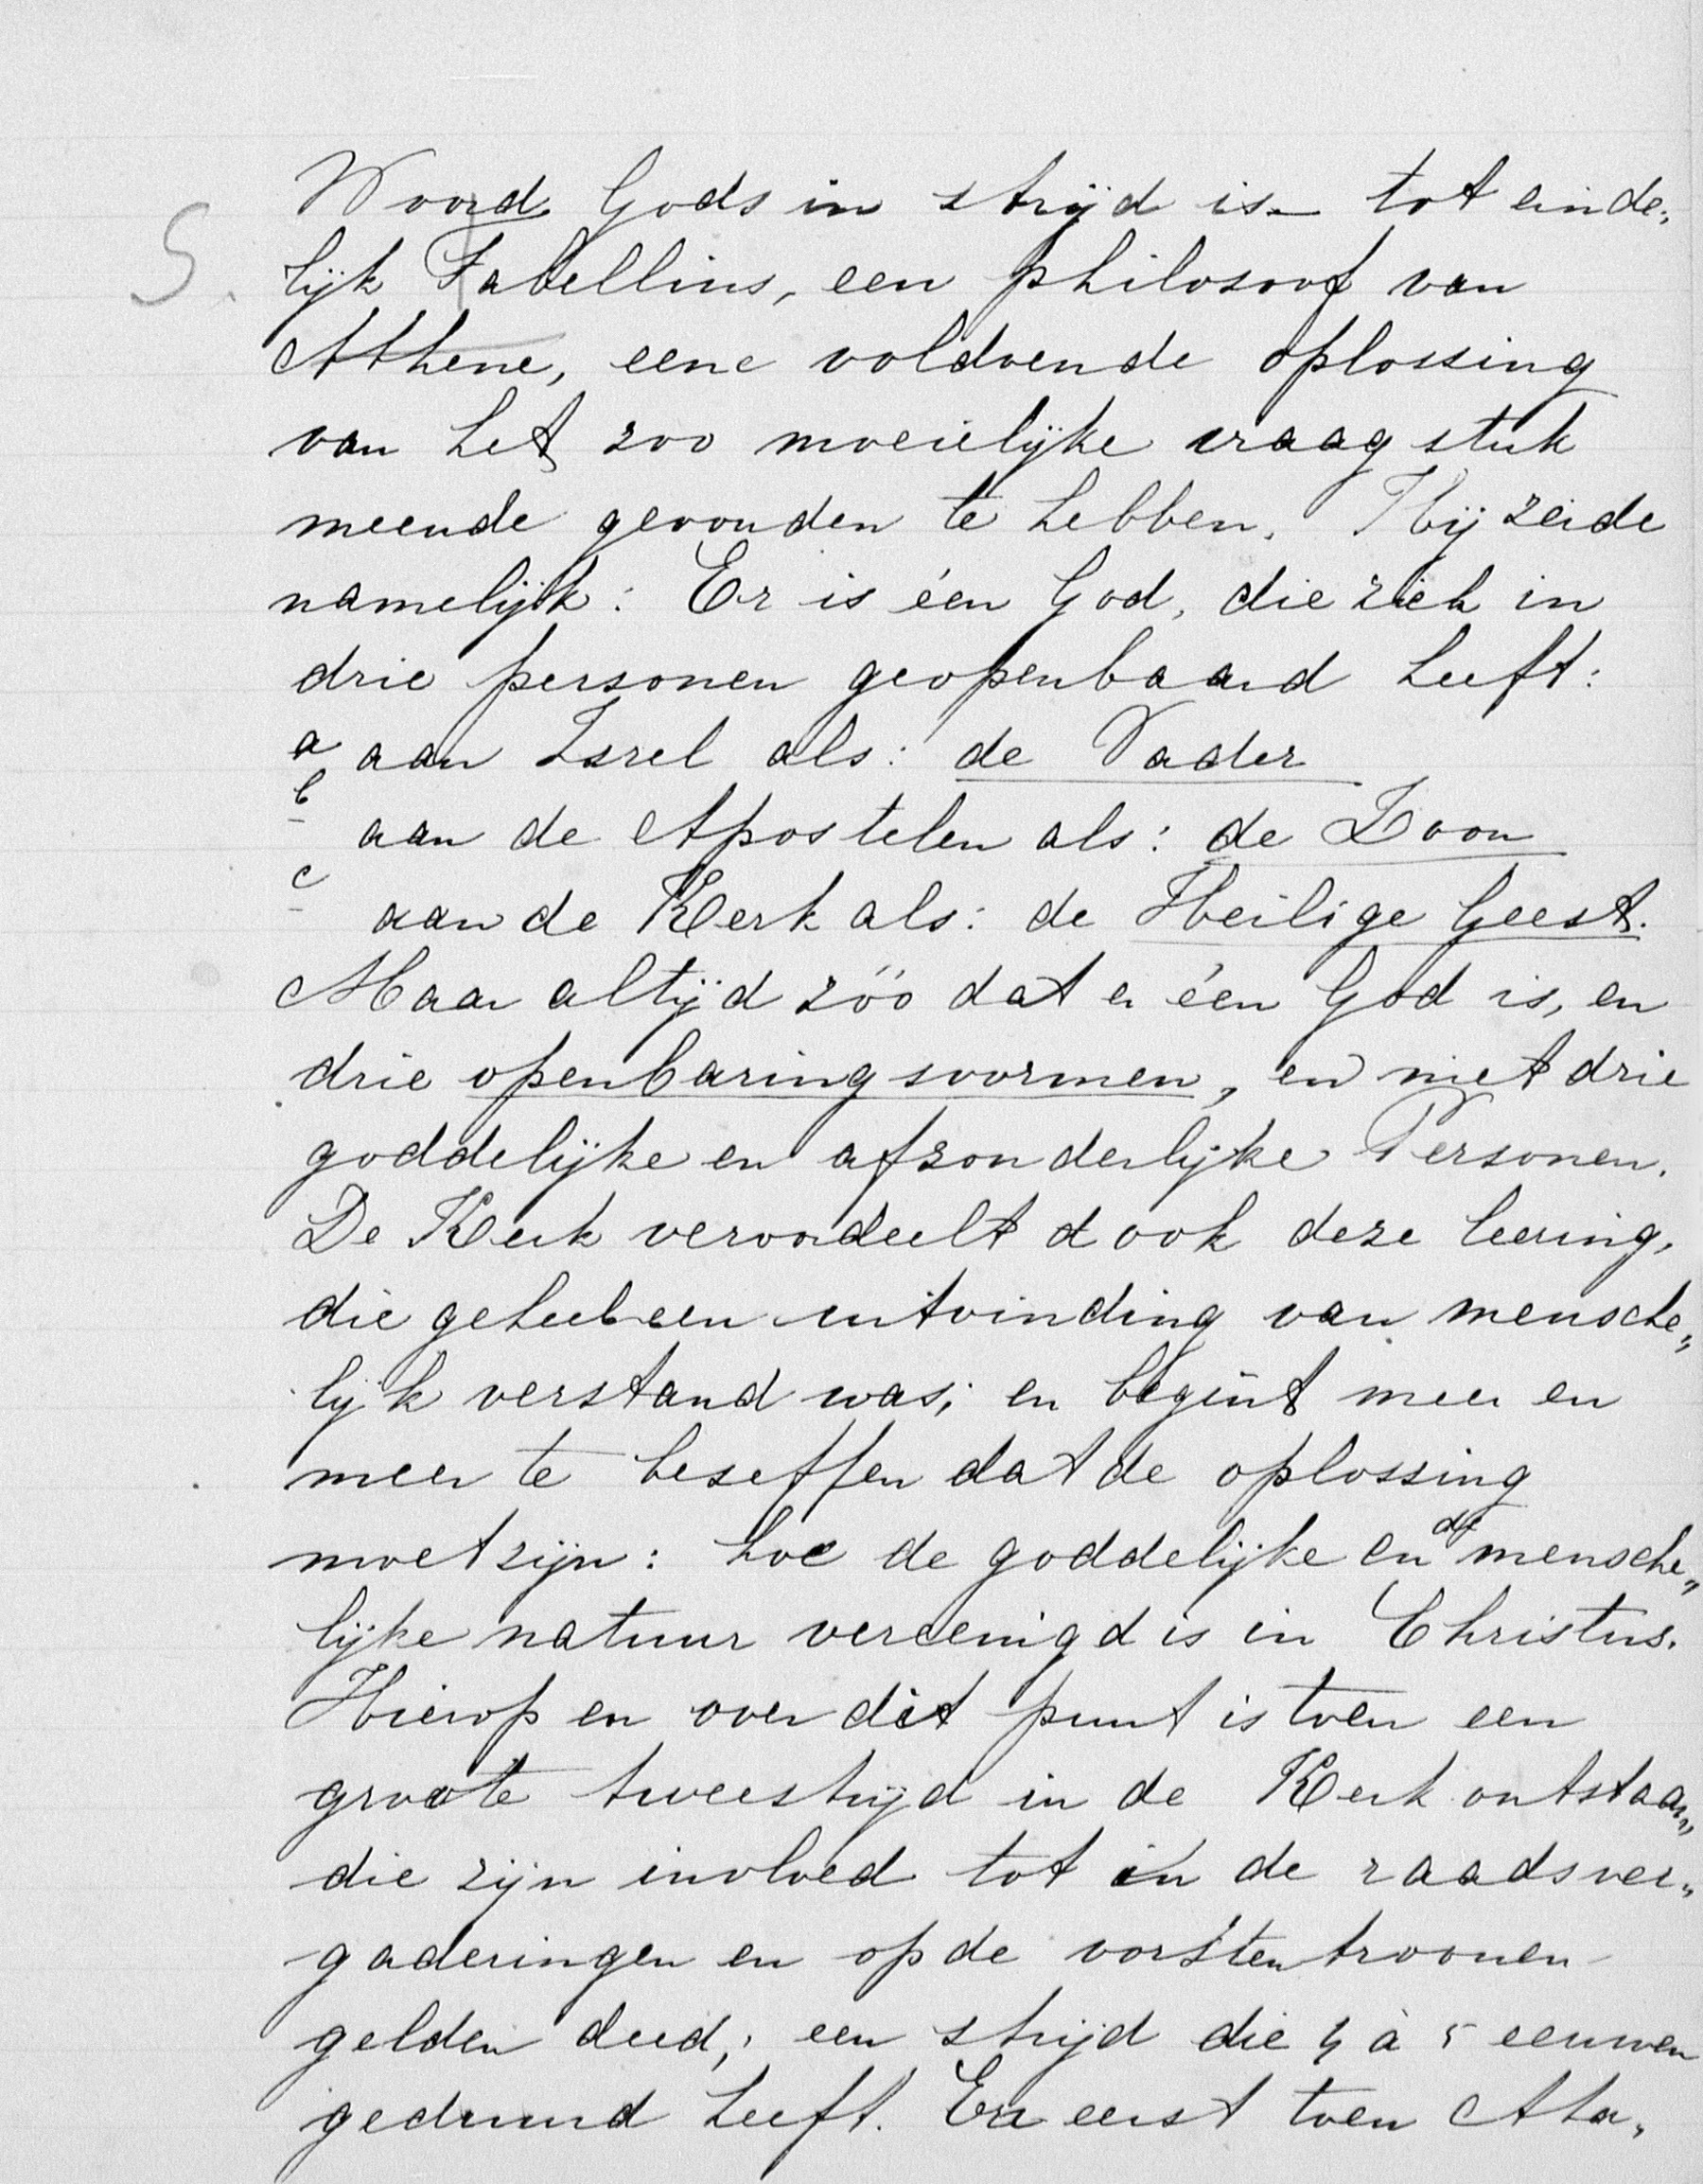 Woord Gods in strijd is – tot einde„
S. lijk Fabellius, een philosoof van
Athene, eene voldoende oplossing
van het zoo moeielijke vraagstuk
meende gevonden te hebben. Hij zeide
namelijk: Er is één God, die zich in
drie personen geopenbaard heeft:
a aan Isrel als: de Vader
b aan de Apostelen als: de Zoon
c aan de Kerk als: de Heilige Geest.
Maar altijd zóó dat er één God is, en
drie openbaringsvormen, en niet drie
goddelijke en afzonderlijke Personen.
De Kerk veroordeelt d ook deze leering,
die geheel een uitvinding van mensche„
lijk verstand was; en begint meer en
meer te beseffen dat de oplossing
moet zijn: hoe de goddelijke en de mensche„
lijke natuur vereenigd is in Christus.
Hierop en over dit punt is toen een
groote tweestrijd in de Kerk ontstaan,
die zijn invloed tot in de raadsver„
gaderingen en op de vorstentroonen
gelden deed; een strijd die 4 à 5 eeuwen
geduurd heeft. En eerst toen Atha„